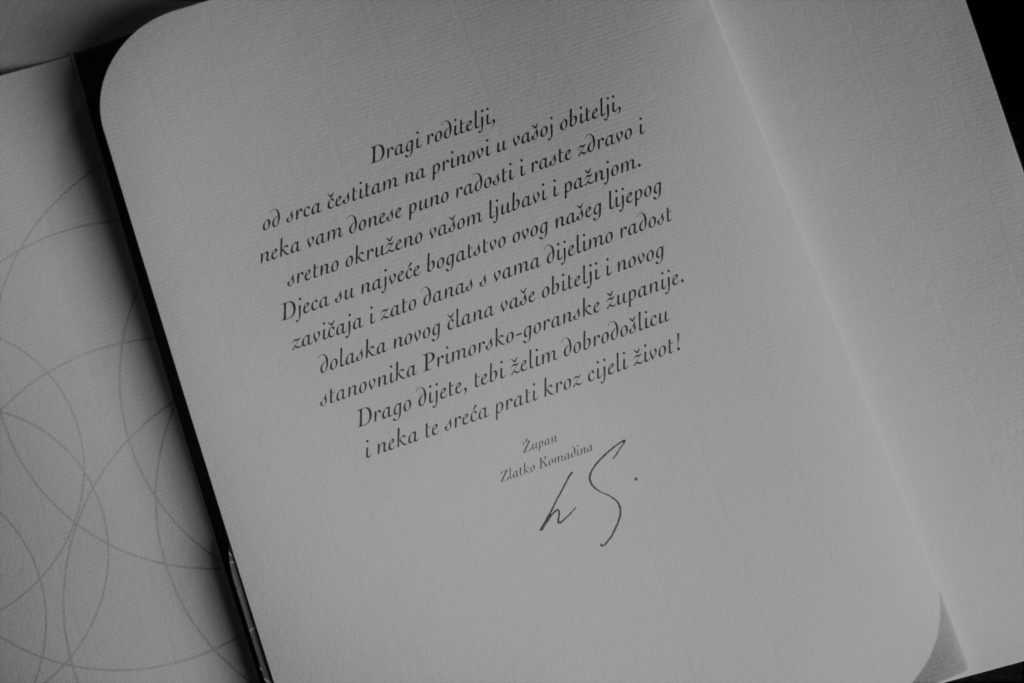 Dragi roditelji,
od srca čestitam na prinovi u vašoj obitelji,
neka vam donese puno radosti i raste zdravo i
sretno okruženo vašom ljubavi i pažnjom.
Djeca su najveće bogatstvo ovog našeg lijepog
zavičaja i zato danas s vama dijelimo radost
dolaska novog člana vaše obitelji i novog
stanovnika Primorsko-goranske županije.
Drago dijete, tebi želim dobrodošlicu
i neka te sreća prati kroz cijeli život!
Župan
Zlatko Komadina